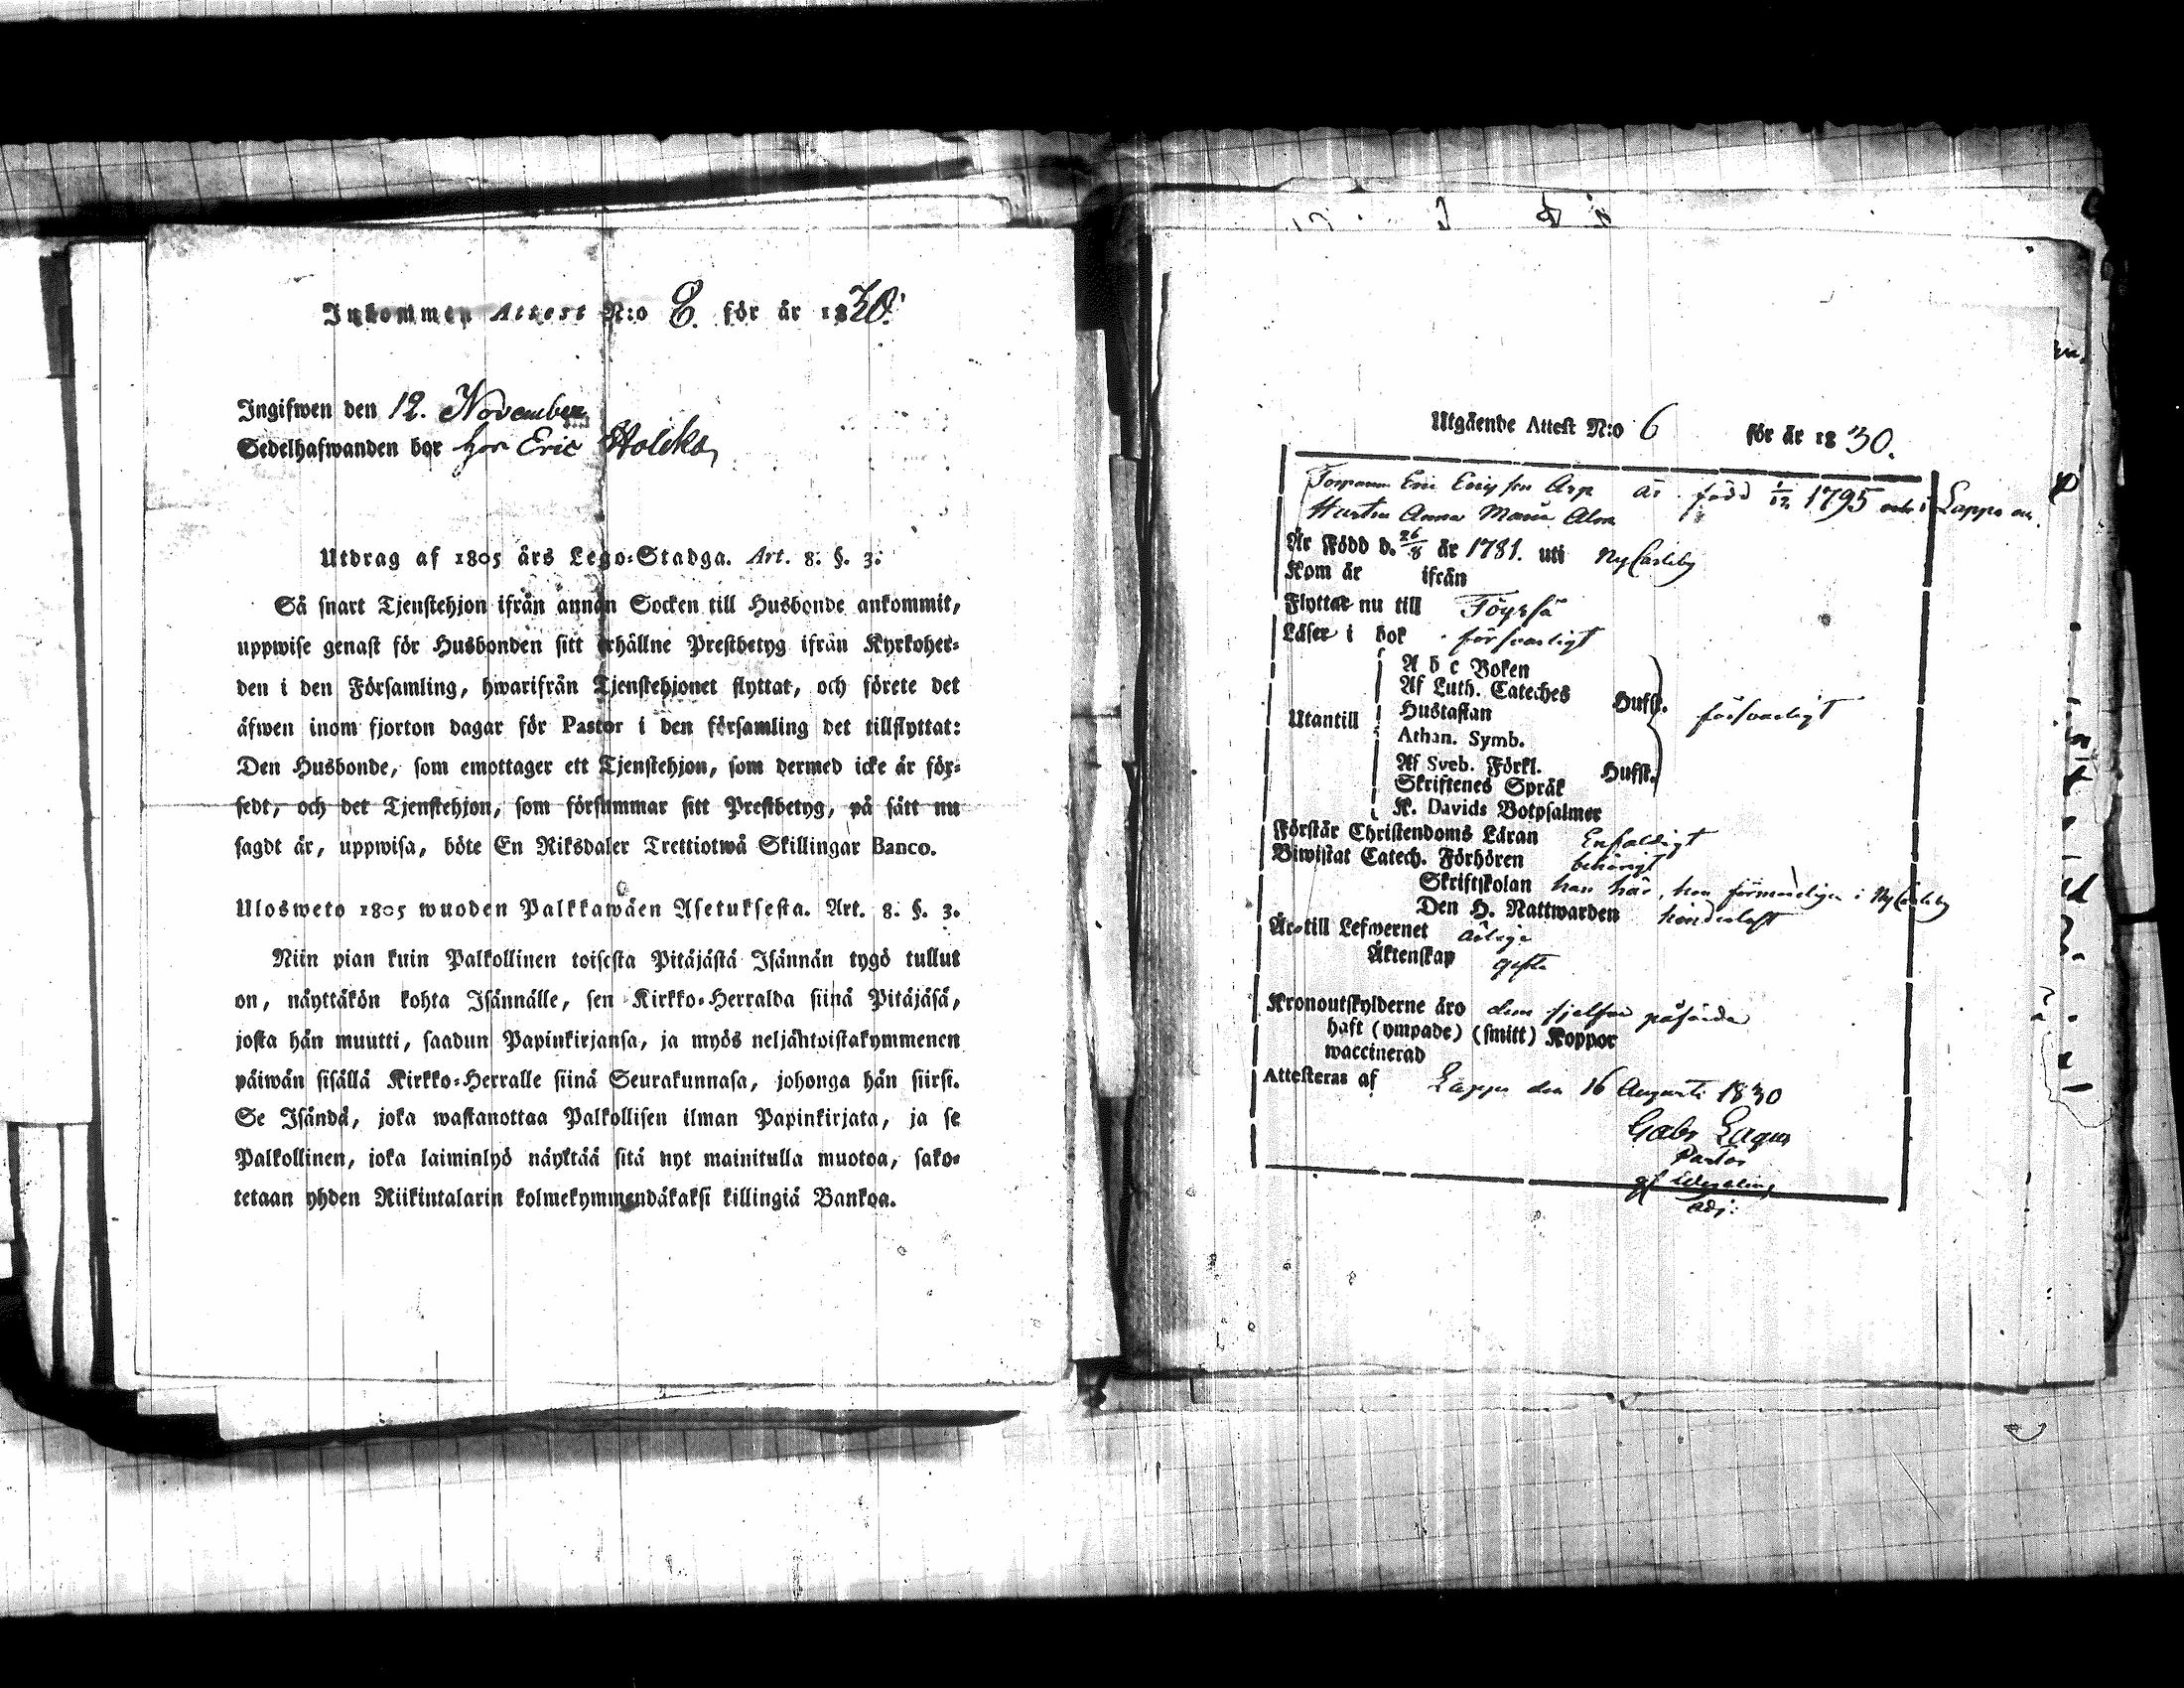 Inkommen Attest N:o 8. för år 1830.
Ingifwen den 12. November
Sedelhafwanden bor hos Eric Holcko
Utdrag af 1805 års Lego-Stadga. Art. 8. §. 3.
Så snart Tjenstehjon ifrån annan Socken till Husbonde ankommit,
uppwise genast för Husbonden sitt erhållne Prestbetyg ifrån Kyrkoher-
den i den Församling, hwarifrån Tjenstehjonet flyttat, och förete det
äfwen inom fjorton dagar för Pastor i den församling det tillflyttat:
Den Husbonde, som emottager ett Tjenstehjon, som dermed icke är för-
sedt, och det Tjenstehjon, som försummar sitt Prestbetyg, på sätt nu
sagdt är, uppwisa, böte En Riksdaler Trettiotwå Skillingar Banco.
Ulosweto 1805 wuoden Palkkawäen Asetuksesta. Art. 8. §. 3.
Niin pian kuin Palkollinen toisesta Pitäjästä Isännän tygö tullut
on, näyttäkön kohta Isännälle, sen Kirkko-Herralda siinä Pitäjäsä,
josta hän muutti, saadun Papinkirjansa, ja myös neljähtoistakymmenen
päiwän sisällä Kirkko-Herralle siinä Seurakunnasa, johonga hän siirsi.
Se Isändä, joka wastanottaa Palkollisen ilman Papinkirjata, ja se
Palkollinen, joka laiminlyö näyttää sitä nyt mainitulla muotoa, sako-
tetaan yhden Riikintalarin kolmekymmendäkaksi killingiä Bankoa.
Utgående Attest N:o 6 för år 1830.
Torparen Eric Ericsson Arp är född 1/12 1795 och i Lappo
Hustru Anna Maria
Är Född d. 26/8 år 1781. uti NyCarleby
Kom år ifrån
Flyttar nu till Töysä
Läser i bok försvarligt
A b c Boken
Af Luth. Cateches Hufst.
Utantill Hustaflan försvarligt
Athan. Symb.
Af Sveb. Förkl. Hufst.
Skriftenes Språk
K. Davids Botpsalmer
Förstår Christendoms Läran Enfaldigt
Biwistat Catech. Förhören behörigt
Skriftskolan han här, hon förmodligen i NyCarleby
Den H. Nattwarden
Är till Lefwernet ärlige
Äktenskap gifte
Kronoutskylderne äro dem sjelfve påförde
haft (ympade) (smitt) Koppor
waccinerad
Attesteras af Lappo den 16 Augusti 1830
Gabr Lagus
Pastor
Adj: